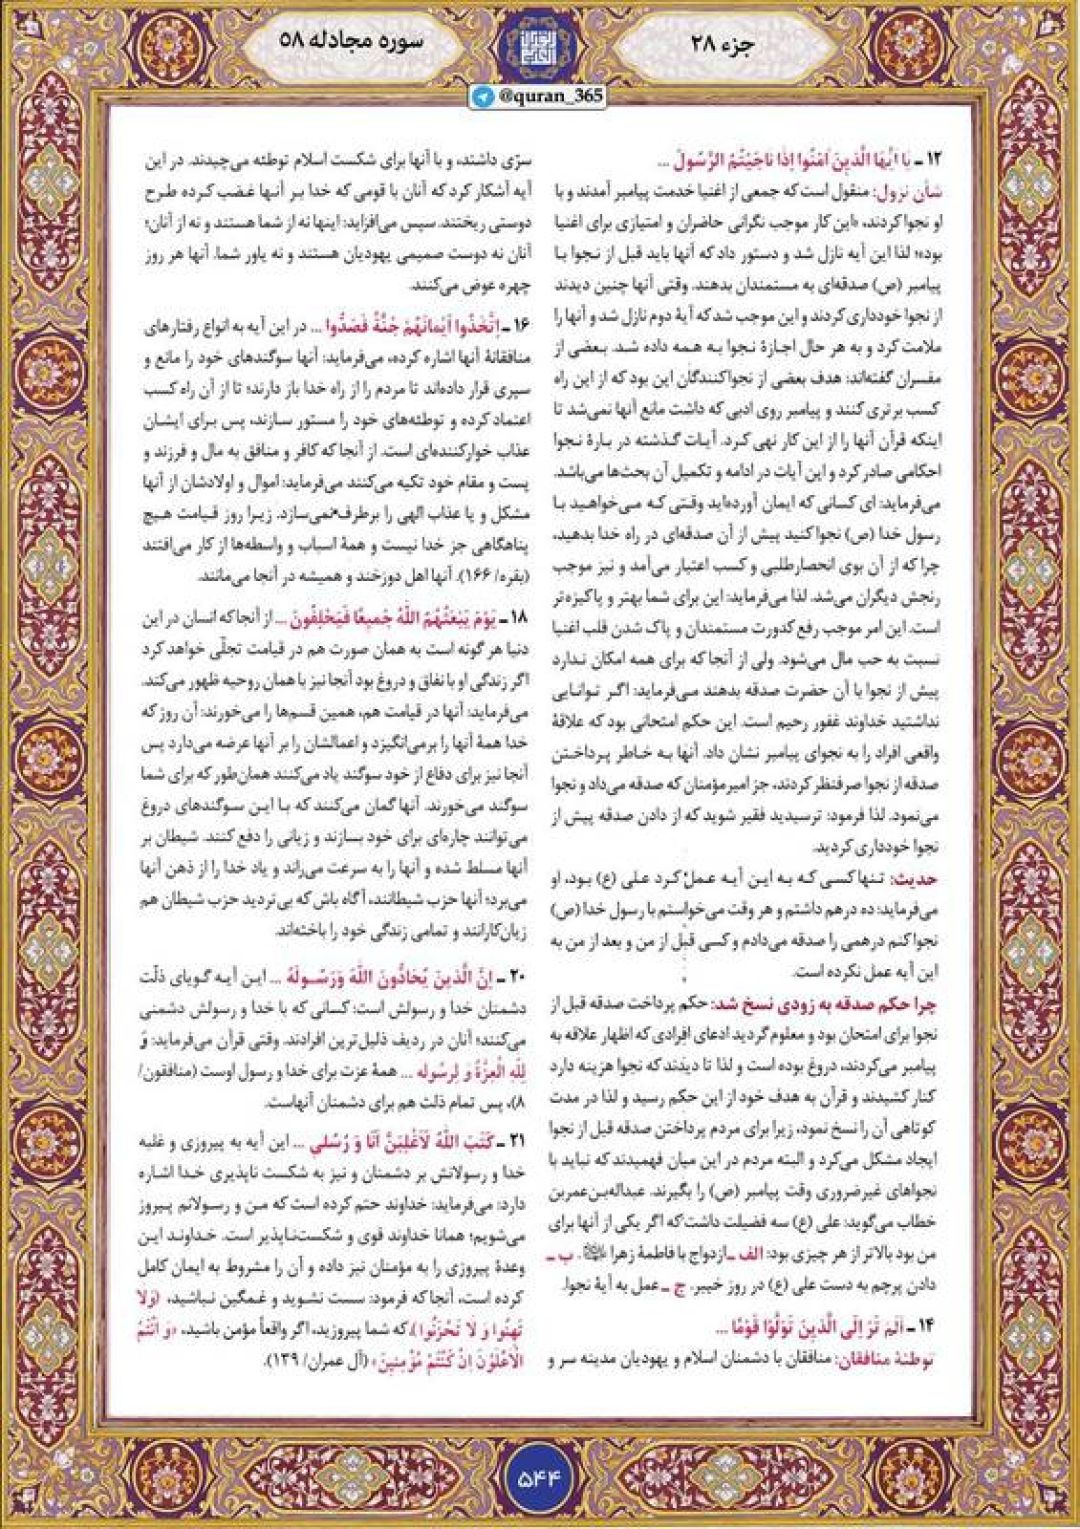 جزء ۲۸
سوره مجادله ۵۸
@quran_365
۱۲ ـ یا اَیُّهَا الَّذینَ آمَنُوا اِذا ناجَیْتُمُ الرَّسُولَ ...
شأن نزول: منقول است که جمعی از اغنیا خدمت پیامبر آمدند و با
او نجوا کردند، «این کار موجب نگرانی حاضران و امتیازی برای اغنیا
بود»؛ لذا این آیه نازل شد و دستور داد که آنها باید قبل از نجوا با
پیامبر (ص) صدقه‌ای به مستمندان بدهند. وقتی آنها چنین دیدند
از نجوا خودداری کردند و این موجب شد که آیهٔ دوم نازل شد و آنها را
ملامت کرد و به هر حال اجازهٔ نجوا به همه داده شد. بعضی از
مفسران گفته‌اند: هدف بعضی از نجواکنندگان این بود که از این راه
کسب برتری کنند و پیامبر روی ادبی که داشت مانع آنها نمی‌شد تا
اینکه قرآن آنها را از این کار نهی کرد. آیات گذشته در بارهٔ نجوا
احکامی صادر کرد و این آیات در ادامه و تکمیل آن بحث‌ها می‌باشد.
می‌فرماید: ای کسانی که ایمان آورده‌اید وقتی که می‌خواهید با
رسول خدا (ص) نجوا کنید پیش از آن صدقه‌ای در راه خدا بدهید،
چرا که از آن بوی انحصارطلبی و کسب اعتبار می‌آمد و نیز موجب
رنجش دیگران می‌شد. لذا می‌فرماید: این برای شما بهتر و پاکیزه‌تر
است. این امر موجب رفع کدورت مستمندان و پاک شدن قلب اغنیا
نسبت به حب مال می‌شود. ولی از آنجا که برای همه امکان ندارد
پیش از نجوا با آن حضرت صدقه بدهند می‌فرماید: اگر توانایی
نداشتید خداوند غفور رحیم است. این حکم امتحانی بود که علاقهٔ
واقعی افراد را به نجوای پیامبر نشان داد. آنها به خاطر پرداختن
صدقه از نجوا صرفنظر کردند، جز امیرمؤمنان که صدقه می‌داد و نجوا
می‌نمود. لذا فرمود: ترسیدید فقیر شوید که از دادن صدقه پیش از
نجوا خودداری کردید.
حدیث: تنها کسی که به این آیه عمل کرد علی (ع) بود، او
می‌فرماید: ده درهم داشتم و هر وقت می‌خواستم با رسول خدا (ص)
نجوا کنم درهمی را صدقه می‌دادم و کسی قبل از من و بعد از من به
این آیه عمل نکرده است.
چرا حکم صدقه به زودی نسخ شد: حکم پرداخت صدقه قبل از
نجوا برای امتحان بود و معلوم گردید ادعای افرادی که اظهار علاقه به
پیامبر می‌کردند، دروغ بوده است و لذا تا دیدند که نجوا هزینه دارد
کنار کشیدند و قرآن به هدف خود از این حکم رسید و لذا در مدت
کوتاهی آن را نسخ نمود، زیرا برای مردم پرداختن صدقه قبل از نجوا
ایجاد مشکل می‌کرد و البته مردم در این میان فهمیدند که نباید با
نجواهای غیرضروری وقت پیامبر (ص) را بگیرند. عبداله‌بن‌عمربن
خطاب می‌گوید: علی (ع) سه فضیلت داشت که اگر یکی از آنها برای
من بود بالاتر از هر چیزی بود: الف ـ ازدواج با فاطمهٔ زهرا. ب ـ
دادن پرچم به دست علی (ع) در روز خیبر. ج ـ عمل به آیهٔ نجوا.
۱۴ ـ اَلَمْ تَرَ اِلَی الَّذینَ تَوَلَّوْا قَوْمًا ...
توطئهٔ منافقان: منافقان با دشمنان اسلام و یهودیان مدینه سر و
سرّی داشتند، و با آنها برای شکست اسلام توطئه می‌چیدند. در این
آیه آشکار کرد که آنان با قومی که خدا بر آنها غضب کرده طرح
دوستی ریختند. سپس می‌افزاید: اینها نه از شما هستند و نه از آنان؛
آنان نه دوست صمیمی یهودیان هستند و نه یاور شما. آنها هر روز
چهره عوض می‌کنند.
۱۶ ـ اِتَّخَذُوا اَیْمانَهُمْ جُنَّةً فَصَدُّوا ... در این آیه به انواع رفتارهای
منافقانهٔ آنها اشاره کرده، می‌فرماید: آنها سوگندهای خود را مانع و
سپری قرار داده‌اند تا مردم را از راه خدا باز دارند؛ تا از آن راه کسب
اعتماد کرده و توطئه‌های خود را مستور سازند، پس برای ایشان
عذاب خوارکننده‌ای است. از آنجا که کافر و منافق به مال و فرزند و
پست و مقام خود تکیه می‌کنند می‌فرماید: اموال و اولادشان از آنها
مشکل و یا عذاب الهی را برطرف نمی‌سازد. زیرا روز قیامت هیچ
پناهگاهی جز خدا نیست و همهٔ اسباب و واسطه‌ها از کار می‌افتند
(بقره/ ۱۶۶). آنها اهل دوزخند و همیشه در آنجا می‌مانند.
۱۸ ـ یَوْمَ یَبْعَثُهُمُ اللّٰهُ جَمیعًا فَیَحْلِفُونَ ... از آنجا که انسان در این
دنیا هر گونه است به همان صورت هم در قیامت تجلّی خواهد کرد
اگر زندگی او با نفاق و دروغ بود آنجا نیز با همان روحیه ظهور می‌کند.
می‌فرماید: آنها در قیامت هم، همین قسم‌ها را می‌خورند: آن روز که
خدا همهٔ آنها را برمی‌انگیزد و اعمالشان را بر آنها عرضه می‌دارد پس
آنجا نیز برای دفاع از خود سوگند یاد می‌کنند همان‌طور که برای شما
سوگند می‌خورند. آنها گمان می‌کنند که با این سوگندهای دروغ
می‌توانند چاره‌ای برای خود بسازند و زیانی را دفع کنند. شیطان بر
آنها مسلط شده و آنها را به سرعت می‌راند و یاد خدا را از ذهن آنها
می‌برد؛ آنها حزب شیطانند، آگاه باش که بی‌تردید حزب شیطان هم
زیان‌کارانند و تمامی زندگی خود را باخته‌اند.
۲۰ ـ اِنَّ الَّذینَ یُحادُّونَ اللّٰهَ وَرَسُولَهُ ... این آیه گویای ذلّت
دشمنان خدا و رسولش است؛ کسانی که با خدا و رسولش دشمنی
می‌کنند؛ آنان در ردیف ذلیل‌ترین افرادند. وقتی قرآن می‌فرماید: وَ
لِلّٰهِ الْعِزَّةُ وَ لِرسُوله ... همهٔ عزت برای خدا و رسول اوست (منافقون/
۸)، پس تمام ذلت هم برای دشمنان آنهاست.
۲۱ ـ کَتَبَ اللّٰهُ لَاَغْلِبَنَّ اَنَا وَ رُسُلی ... این آیه به پیروزی و غلبه
خدا و رسولانش بر دشمنان و نیز به شکست ناپذیری خدا اشاره
دارد: می‌فرماید: خداوند حتم کرده است که من و رسولانم پیروز
می‌شویم؛ همانا خداوند قوی و شکست‌ناپذیر است. خداوند این
وعدهٔ پیروزی را به مؤمنان نیز داده و آن را مشروط به ایمان کامل
کرده است، آنجا که فرمود: سست نشوید و غمگین نباشید، (وَلا
تَهِنُوا وَ لا تَحْزَنُوا)، که شما پیروزید، اگر واقعاً مؤمن باشید، «وَ اَنْتُمُ
الْاَعْلَوْنَ اِنْ کُنْتُمْ مُؤْمِنینَ» (آل عمران/ ۱۳۹).
۵۴۴